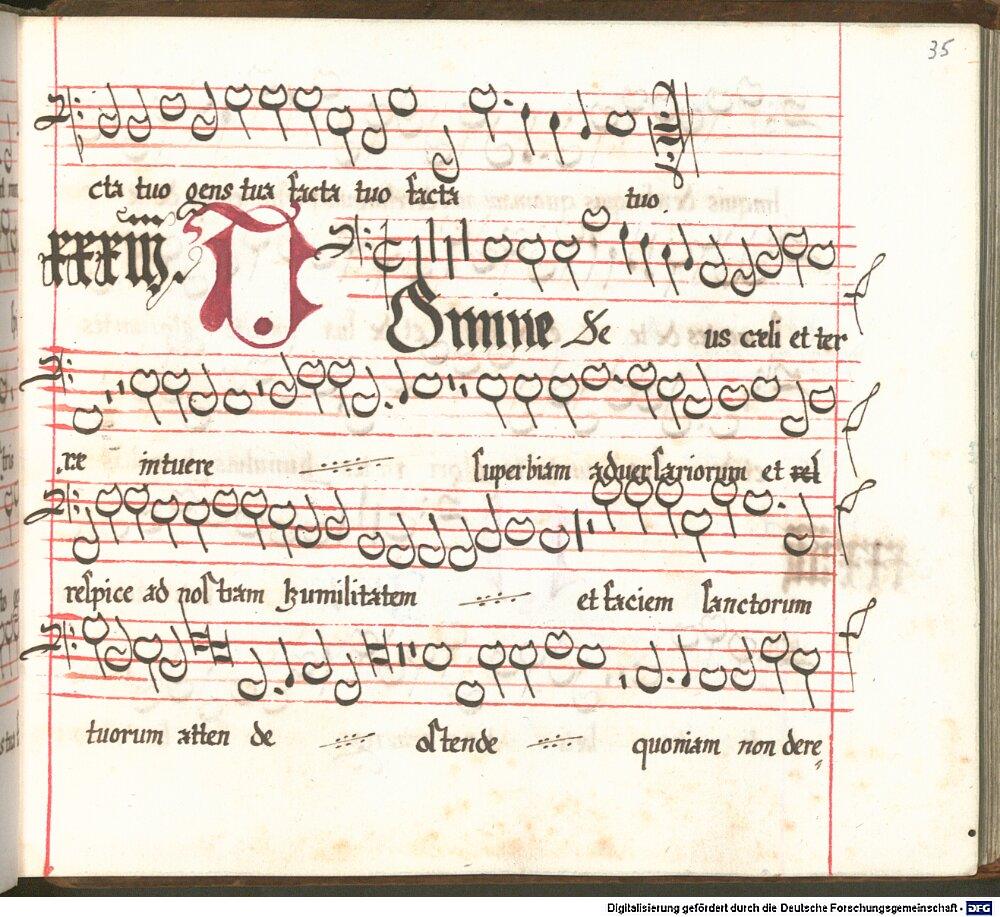 35
cta tuo gens tua facta tuo facta tuo
xxxiiij. D
Omine De us cæli et ter
ræ intuere superbiam aduersariorum et rel
respice ad nostram humilitatem et faciem sanctorum
tuorum atten de ostende quoniam non dere
Digitalisierung gefördert durch die Deutsche Forschungsgemeinschaft - DFG